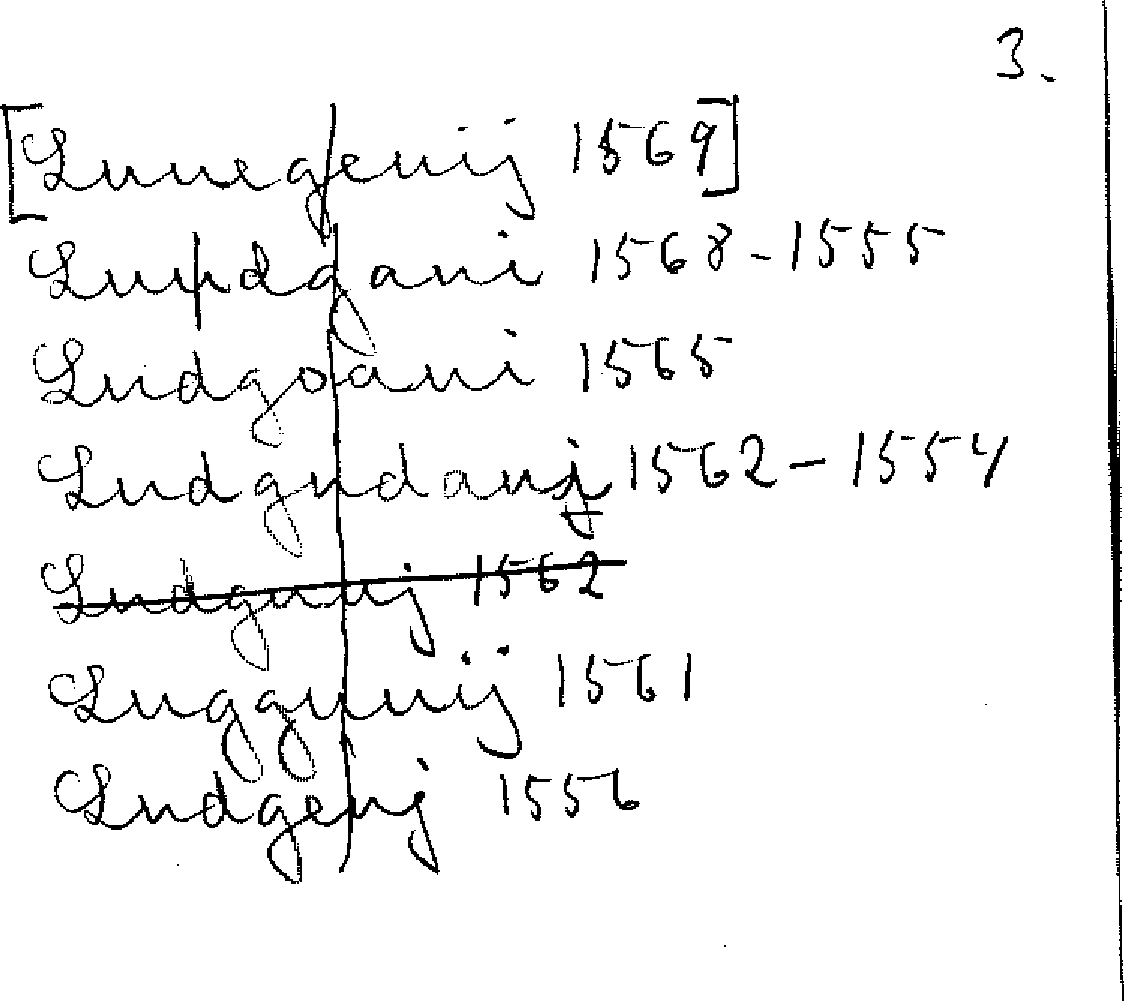 3.
[Lunegenij 1569]
Lundgani 1568-1555
Ludgoani 1565
Ludgudanj 1562-1554
Ludganj 1562
Luggunij 1561
Ludgenj 1556